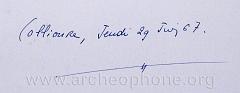 Collioure, Jeudi 29 Juin 67.
www.archeophone.org